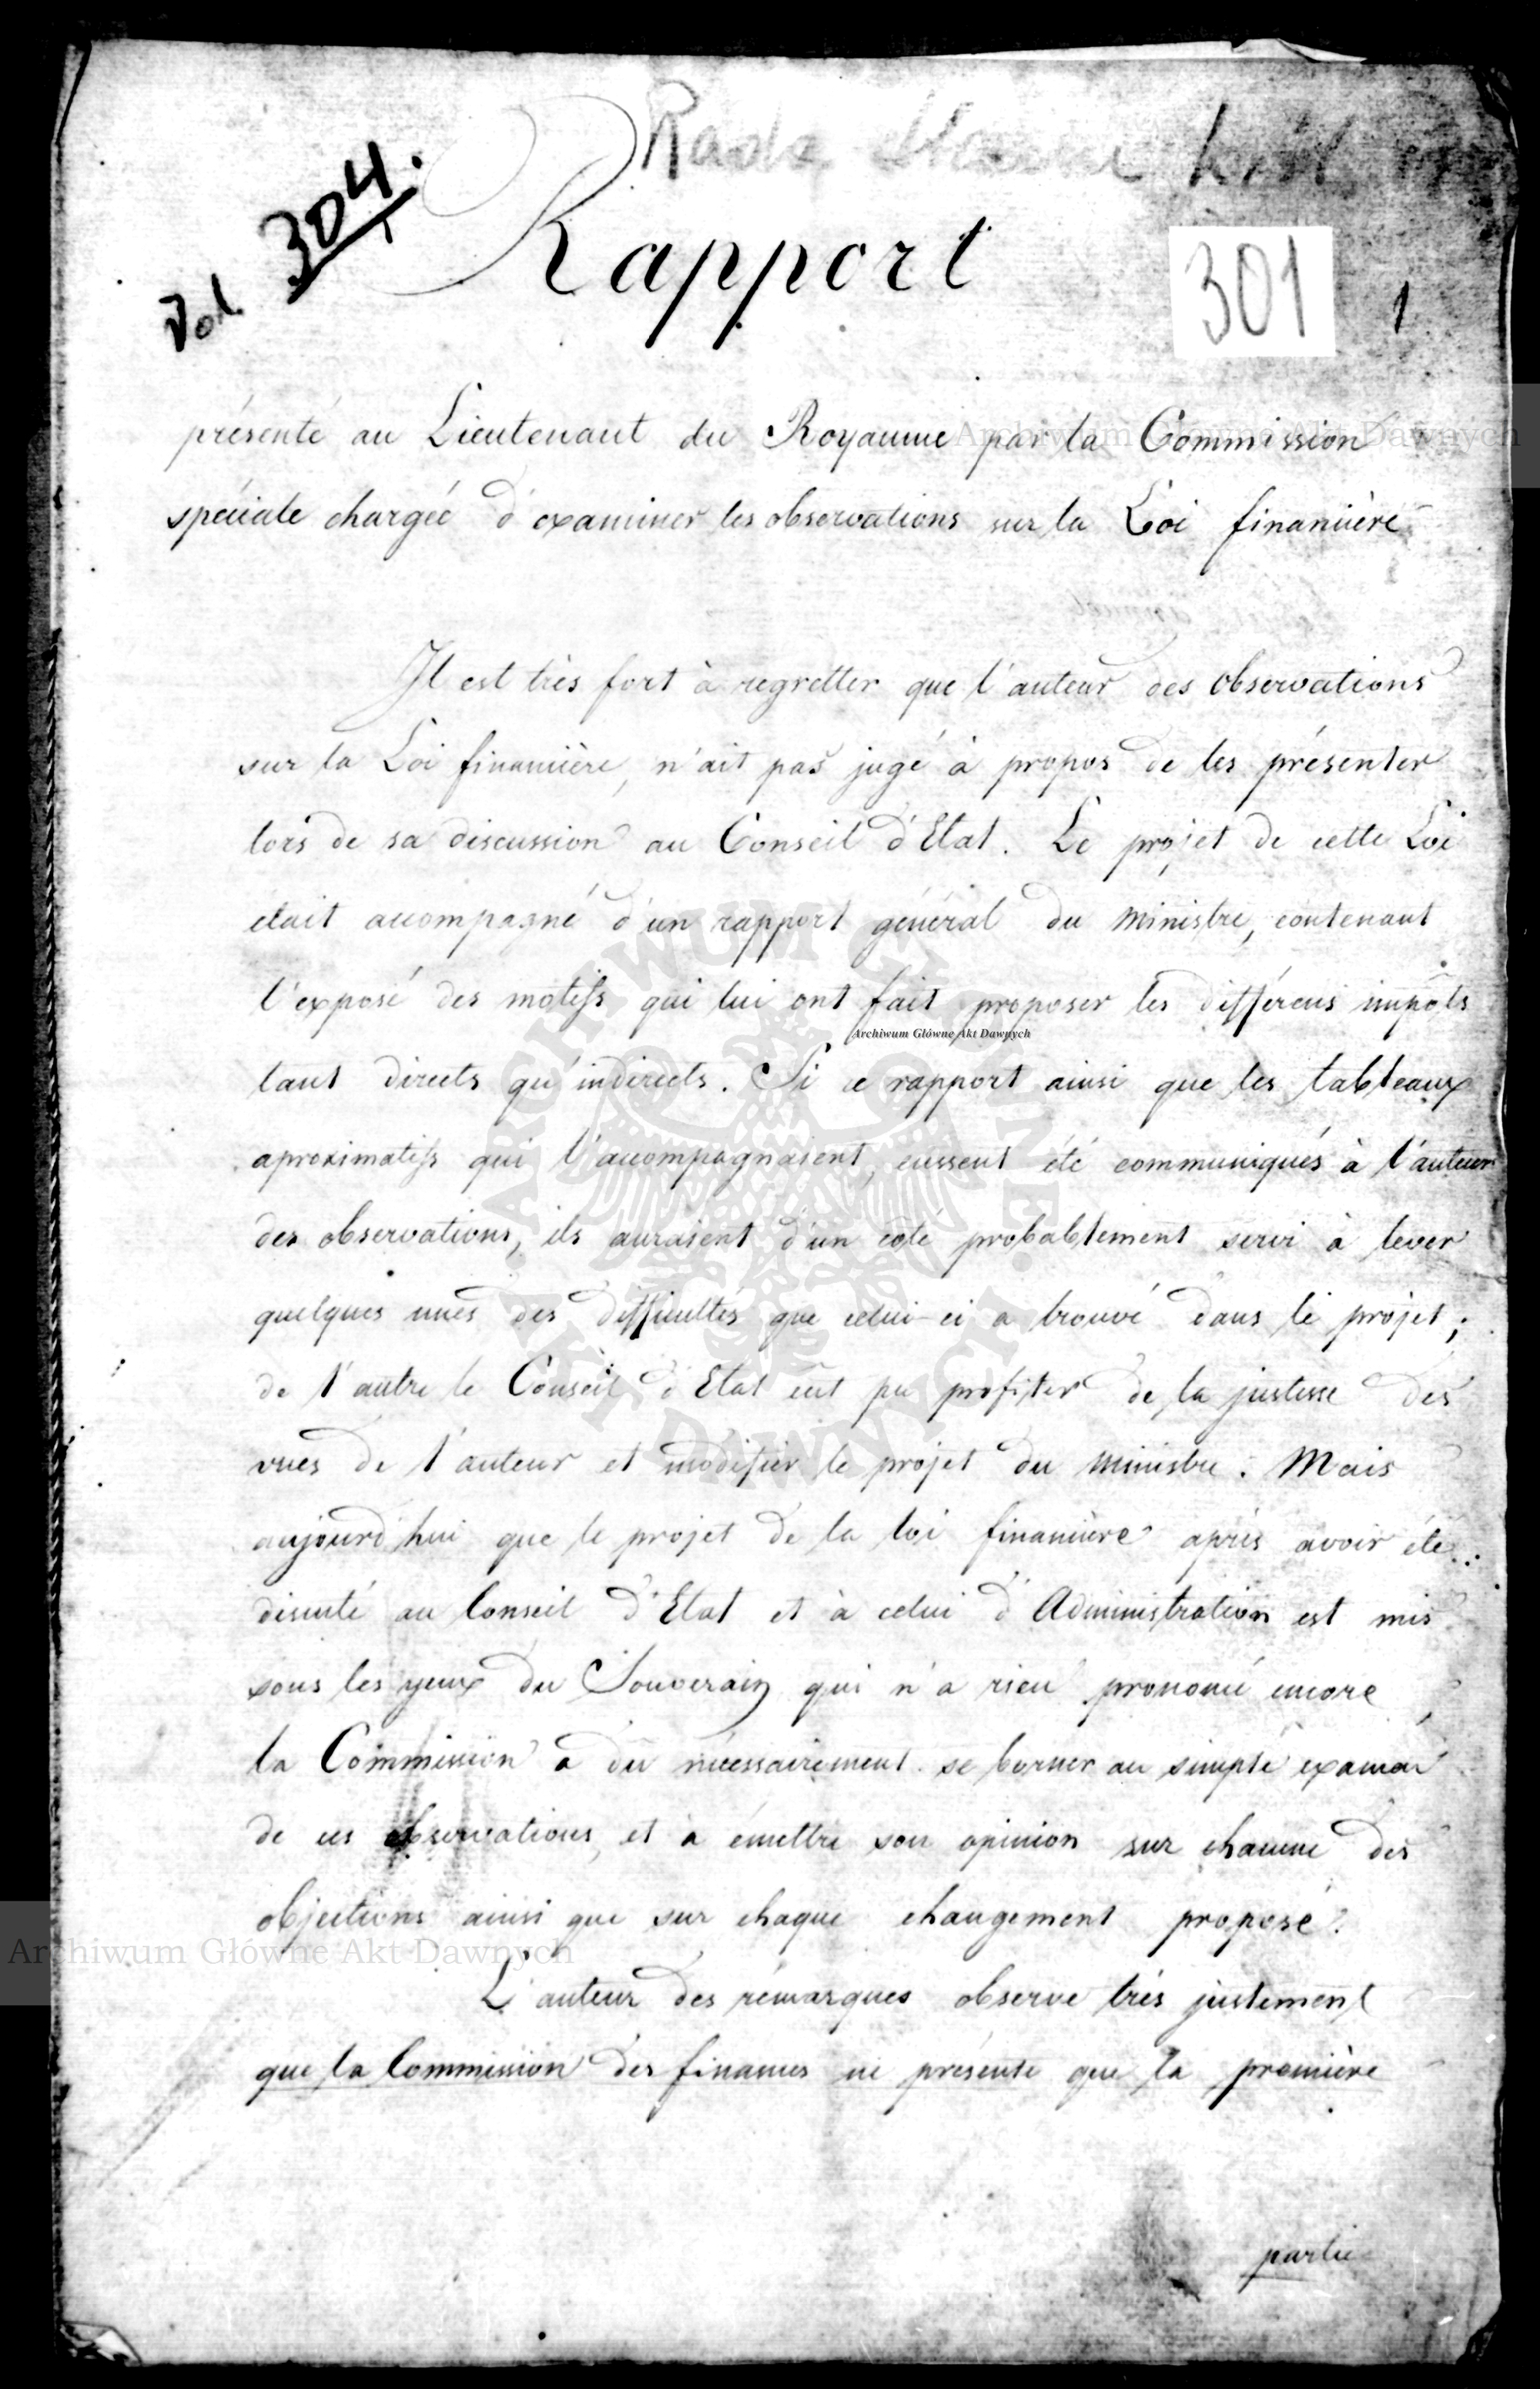 Rada Stanu Król
Vol 304.
Rapport
301
1
présenté au Lieutenant du Royaume par la Commission
spéciale chargée d'examiner les observations sur la Loi financière
Il est très fort à regretter que l'auteur des observations
sur la Loi financière, n'ait pas jugé à propos de les présenter
lors de sa discussion au Conseil d'Etat. Le projet de cette Loi
était accompagné d'un rapport général du Ministre, contenant
l'exposé des motifs qui lui ont fait proposer les différens impôts
Archiwum Główne Akt Dawnych
tant directs qu'indirects. Si ce rapport ainsi que les tableaux
aproximatifs qui l'accompagnaient, eussent été communiqués à l'auteur
des observations, ils auraient d'un coté probablement servi à lever
quelques unes des difficultés que celui-ci a trouvé dans le projet;
de l'autre le Conseil d'Etat eut pu profiter de la justesse des
vues de l'auteur et modifier le projet du Ministre. Mais
aujourd'hui que le projet de la loi financière après avoir été
discuté au Conseil d'Etat et à celui d'Administration est mis
sous les yeux du Souverain qui n'a rien prononcé encore
la Commission a dû nécessairement se borner au simple examen
de ces observations, et à émettre son opinion sur chacune des
objections ainsi que sur chaque changement proposé.
L'auteur des rémarques observe très justement
que la Commission des finances ne présente que la première
partie
Archiwum Główne Akt Dawnych
Archiwum Główne Akt Dawnych
ARCHIWUM GŁÓWNE
AKT DAWNYCH